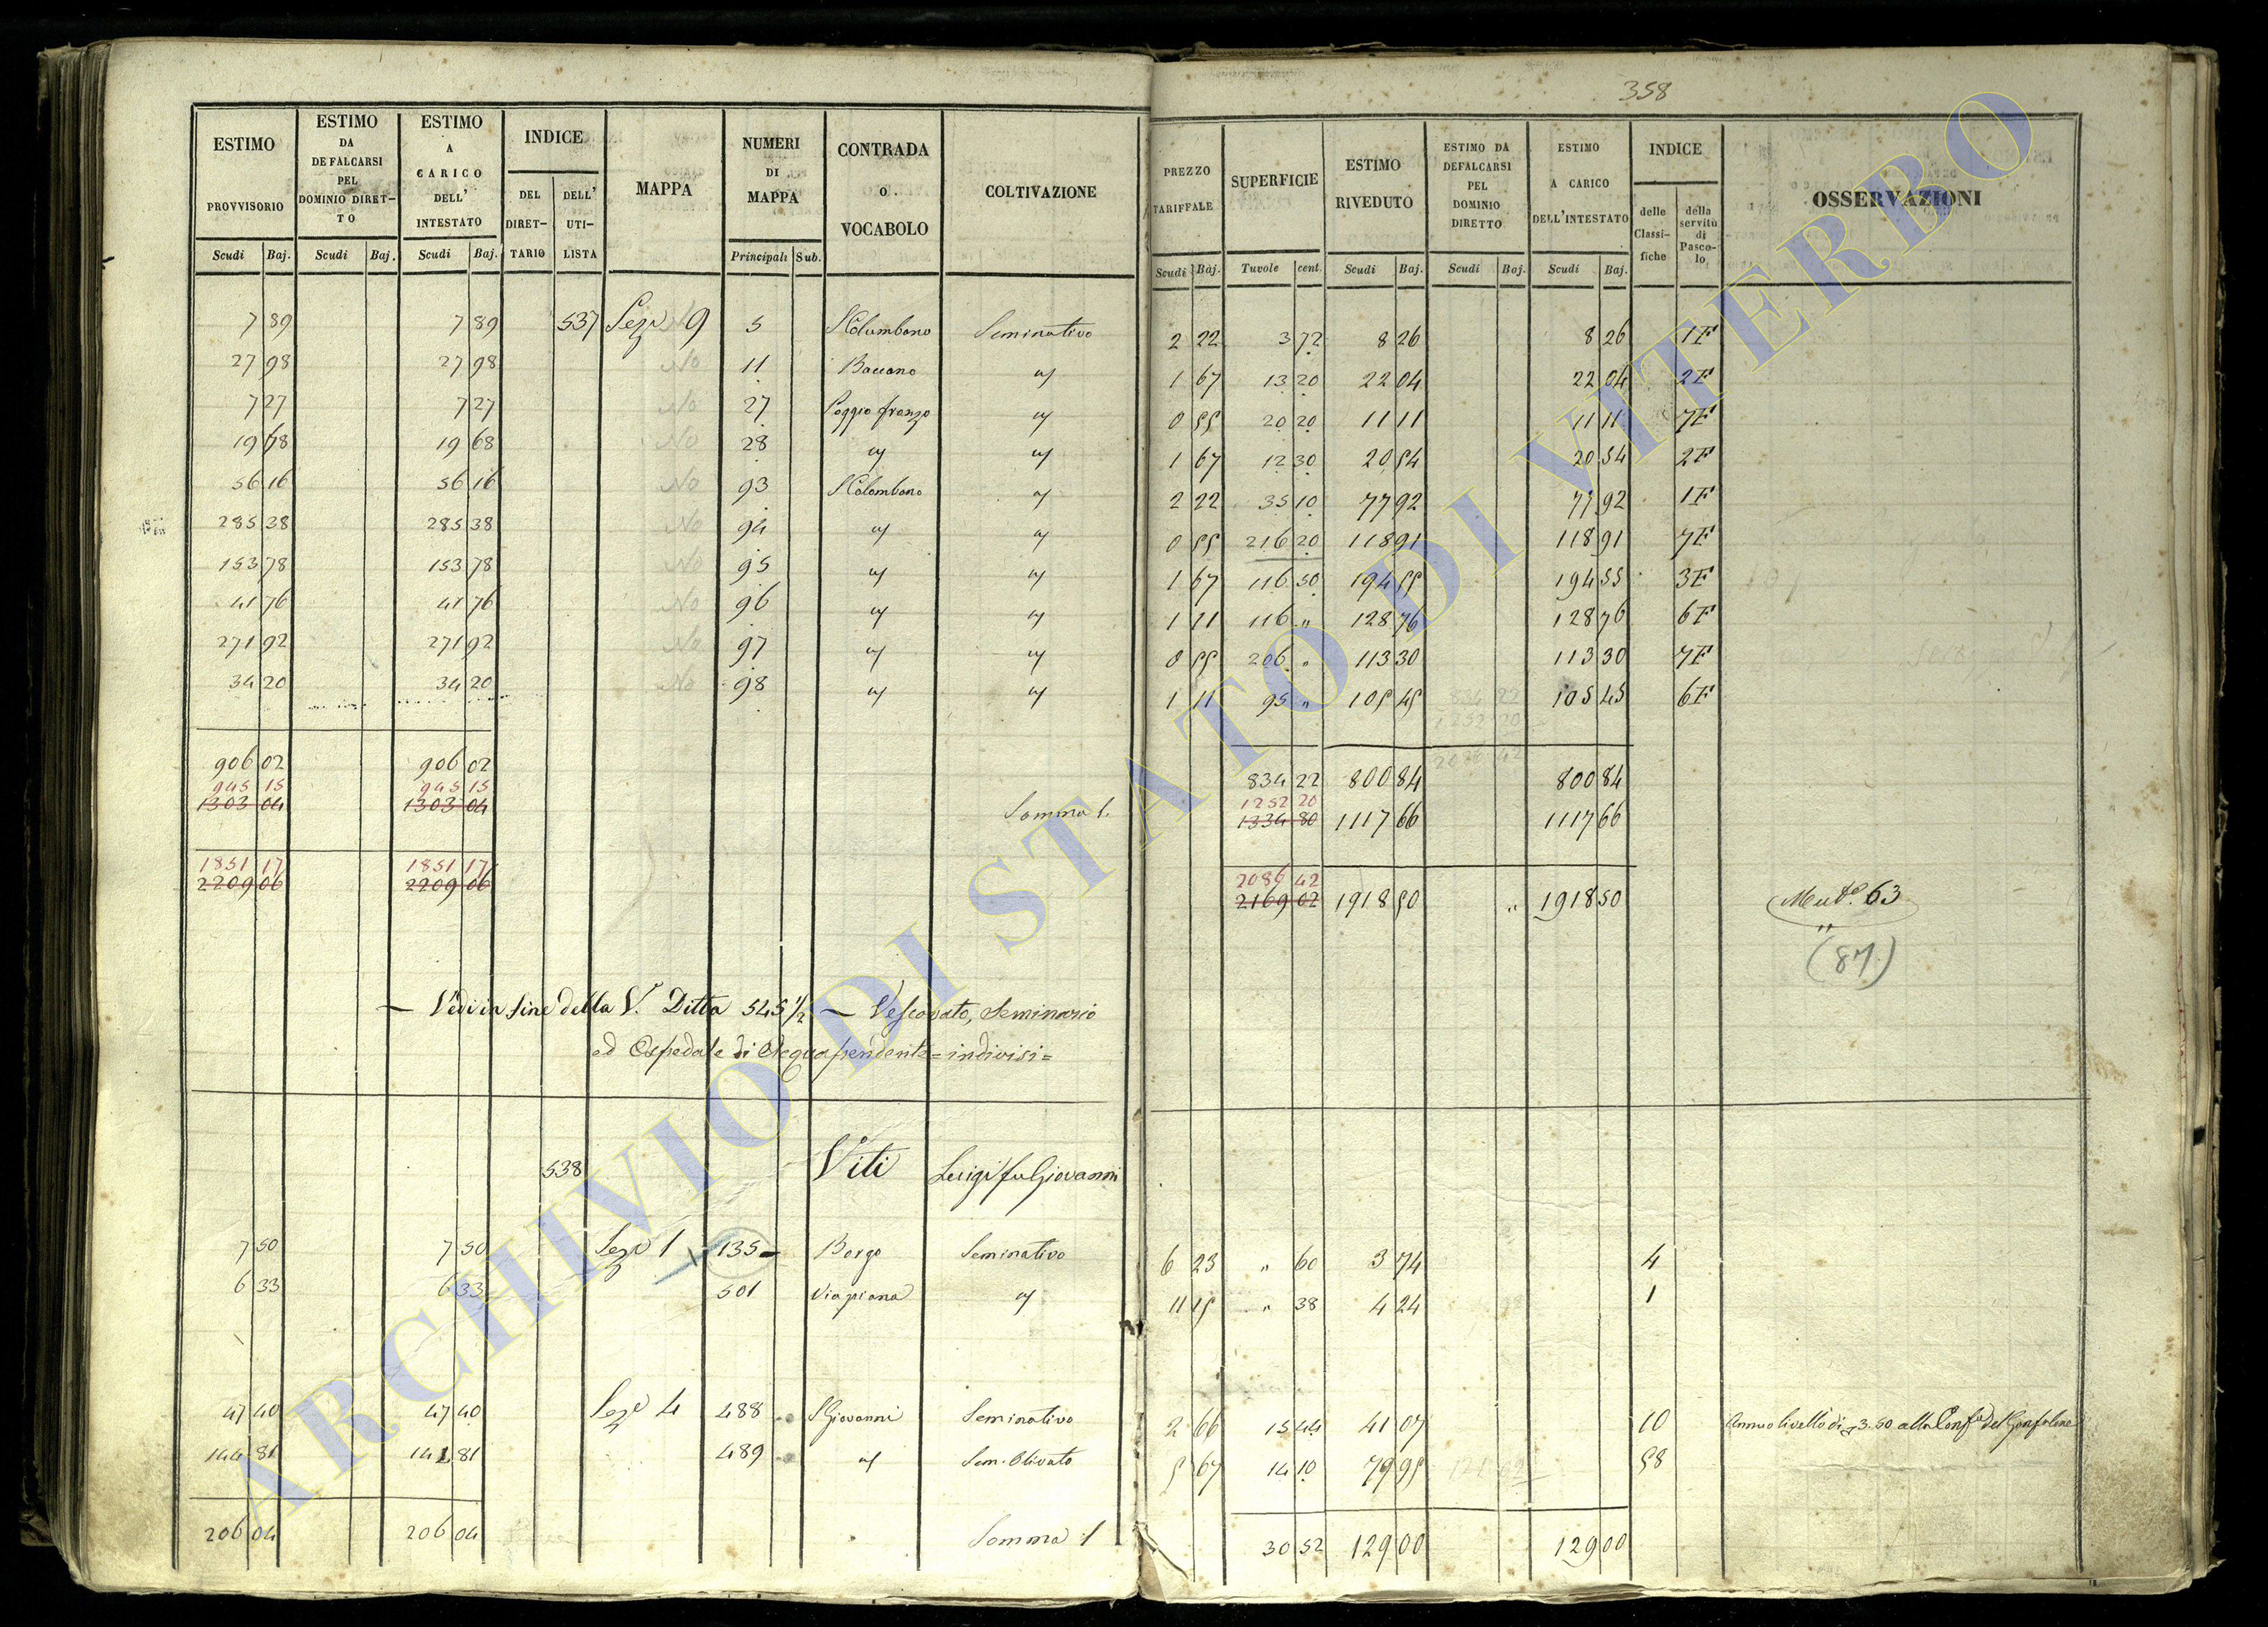 358
ESTIMO PROVVISORIO | ESTIMO DA DEFALCARSI PEL DOMINIO DIRET-TO | ESTIMO A CARICO DELL' INTESTATO | INDICE | MAPPA | NUMERI DI MAPPA | CONTRADA O VOCABOLO | COLTIVAZIONE | PREZZO TARIFFALE | SUPERFICIE | ESTIMO RIVEDUTO | ESTIMO DA DEFALCARSI PEL DOMINIO DIRETTO | ESTIMO A CARICO DELL'INTESTATO | INDICE | OSSERVAZIONI
DEL DIRET-TARIO | DELL' UTI-LISTA | delle Classi-fiche | della servitù di Pasco-lo
Scudi | Baj. | Scudi | Baj. | Scudi | Baj. | Principali | Sub. | Scudi | Baj. | Tavole | cent. | Scudi | Baj. | Scudi | Baj. | Scudi | Baj.
7 89 | 7 89 | 537 | Seze 9 | 5 | S Columbano | Seminativo | 2 22 | 3 72 | 8 26 | 8 26 | 1F
27 98 | 27 98 | No | 11 | Baccano | " | 1 67 | 13 20 | 22 04 | 22 04 | 2F
7 27 | 7 27 | No | 27 | Poggio franzo | " | 0 55 | 20 20 | 11 11 | 11 11 | 7F
19 68 | 19 68 | No | 28 | " | " | 1 67 | 12 30 | 20 54 | 20 54 | 2F
56 16 | 56 16 | No | 93 | S Colombano | " | 2 22 | 35 10 | 77 92 | 77 92 | 1F
285 38 | 285 38 | No | 94 | " | " | 0 55 | 216 20 | 118 91 | 118 91 | 7F
153 78 | 153 78 | No | 95 | " | " | 1 67 | 116 50 | 194 55 | 194 55 | 3F
41 76 | 41 76 | No | 96 | " | " | 1 11 | 116 " | 128 76 | 128 76 | 6F
271 92 | 271 92 | No | 97 | " | " | 0 55 | 206 " | 113 30 | 113 30 | 7F
34 20 | 34 20 | No | 98 | " | " | 1 11 | 95 " | 105 45 | 105 45 | 6F
906 02 | 906 02 | 834 22 | 800 84 | 800 84
945 15 | 945 15 | 1252 20
1303 04 | 1303 04 | Somma 1. | 1334 80 | 1117 66 | 1117 66
1851 17 | 1851 17 | 2086 42
2209 06 | 2209 06 | 2169 02 | 1918 50 | " | 1918 50 | Muto. 63
(87)
— Vedi in fine della V. Ditta 545 1/2 — Vescovato, Seminario
ed Ospedale di Acquapendente = indivisi =
538 | Viti | Luigi fu Giovanni
7 50 | 7 50 | Seze 1 | 135 | Borgo | Seminativo | 6 23 | " 60 | 3 74 | 4
6 33 | 6 33 | 501 | Viapiana | " | 11 15 | " 38 | 4 24 | 1
47 40 | 47 40 | Seze 4 | 488 | S Giovanni | Seminativo | 2 66 | 15 44 | 41 07 | 10 | Annuo livello di 3.50 alla Confa del Gonfalone
144 81 | 144 81 | 489 | " | Sem. Olivato | 5 67 | 14 10 | 79 95 | 58
206 04 | 206 04 | Somma 1 | 30 52 | 129 00 | 129 00
ARCHIVIO DI STATO DI VITERBO